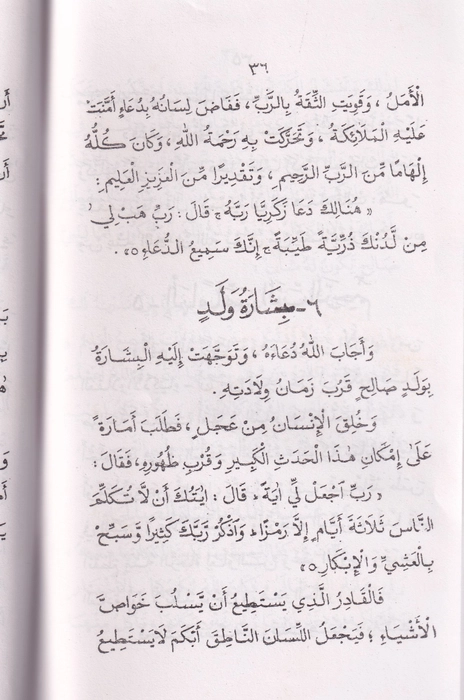 ٣٦
الْأَمَلُ ، وَقَوِيَتِ الثِّقَةُ بِالرَّبِّ ، فَفَاضَ لِسَانُهُ بِدُعَاءٍ أَمَّنَتْ
عَلَيْهِ الْمَلَائِكَةُ ، وَتَحَرَّكَتْ بِهِ رَحْمَةُ اللهِ ، وَكَانَ كُلُّهُ
إِلْهَامًا مِّنَ الرَّبِّ الرَّحِيمِ ، وَتَقْدِيرًا مِّنَ الْعَزِيزِ الْعَلِيمِ :
« هُنَالِكَ دَعَا زَكَرِيَّا رَبَّهُ ج قَالَ : رَبِّ هَبْ لِي
مِنْ لَّدُنْكَ ذُرِّيَّةً طَيِّبَةً ج إِنَّكَ سَمِيعُ الدُّعَاءِ ٥» .
٦- بِشَارَةُ وَلَدٍ
وَأَجَابَ اللهُ دُعَاءَهُ ، وَتَوَجَّهَتْ إِلَيْهِ الْبِشَارَةُ
بِوَلَدٍ صَالِحٍ قَرُبَ زَمَانُ وِلَادَتِهِ .
وَخُلِقَ الْإِنْسَانُ مِنْ عَجَلٍ ، فَطَلَبَ أَمَارَةً
عَلَىٰ إِمْكَانِ هٰذَا الْحَدَثِ الْكَبِيرِ وَقُرْبِ ظُهُورِهِ ، فَقَالَ :
« رَبِّ اجْعَلْ لِّي اٰيَةً ط قَالَ : اٰيَتُكَ أَنْ لَّا تُكَلِّمَ
النَّاسَ ثَلَاثَةَ أَيَّامٍ إِلَّا رَمْزًا ط وَاذْكُرْ رَبَّكَ كَثِيرًا وَّسَبِّحْ
بِالْعَشِيِّ وَالْإِبْكَارِ ٥»
فَالْقَادِرُ الَّذِي يَسْتَطِيعُ أَنْ يَّسْلُبَ خَوَاصَّ
الْأَشْيَاءِ ؛ فَيَجْعَلُ اللِّسَانَ النَّاطِقَ أَبْكَمَ لَا يَسْتَطِيعُ